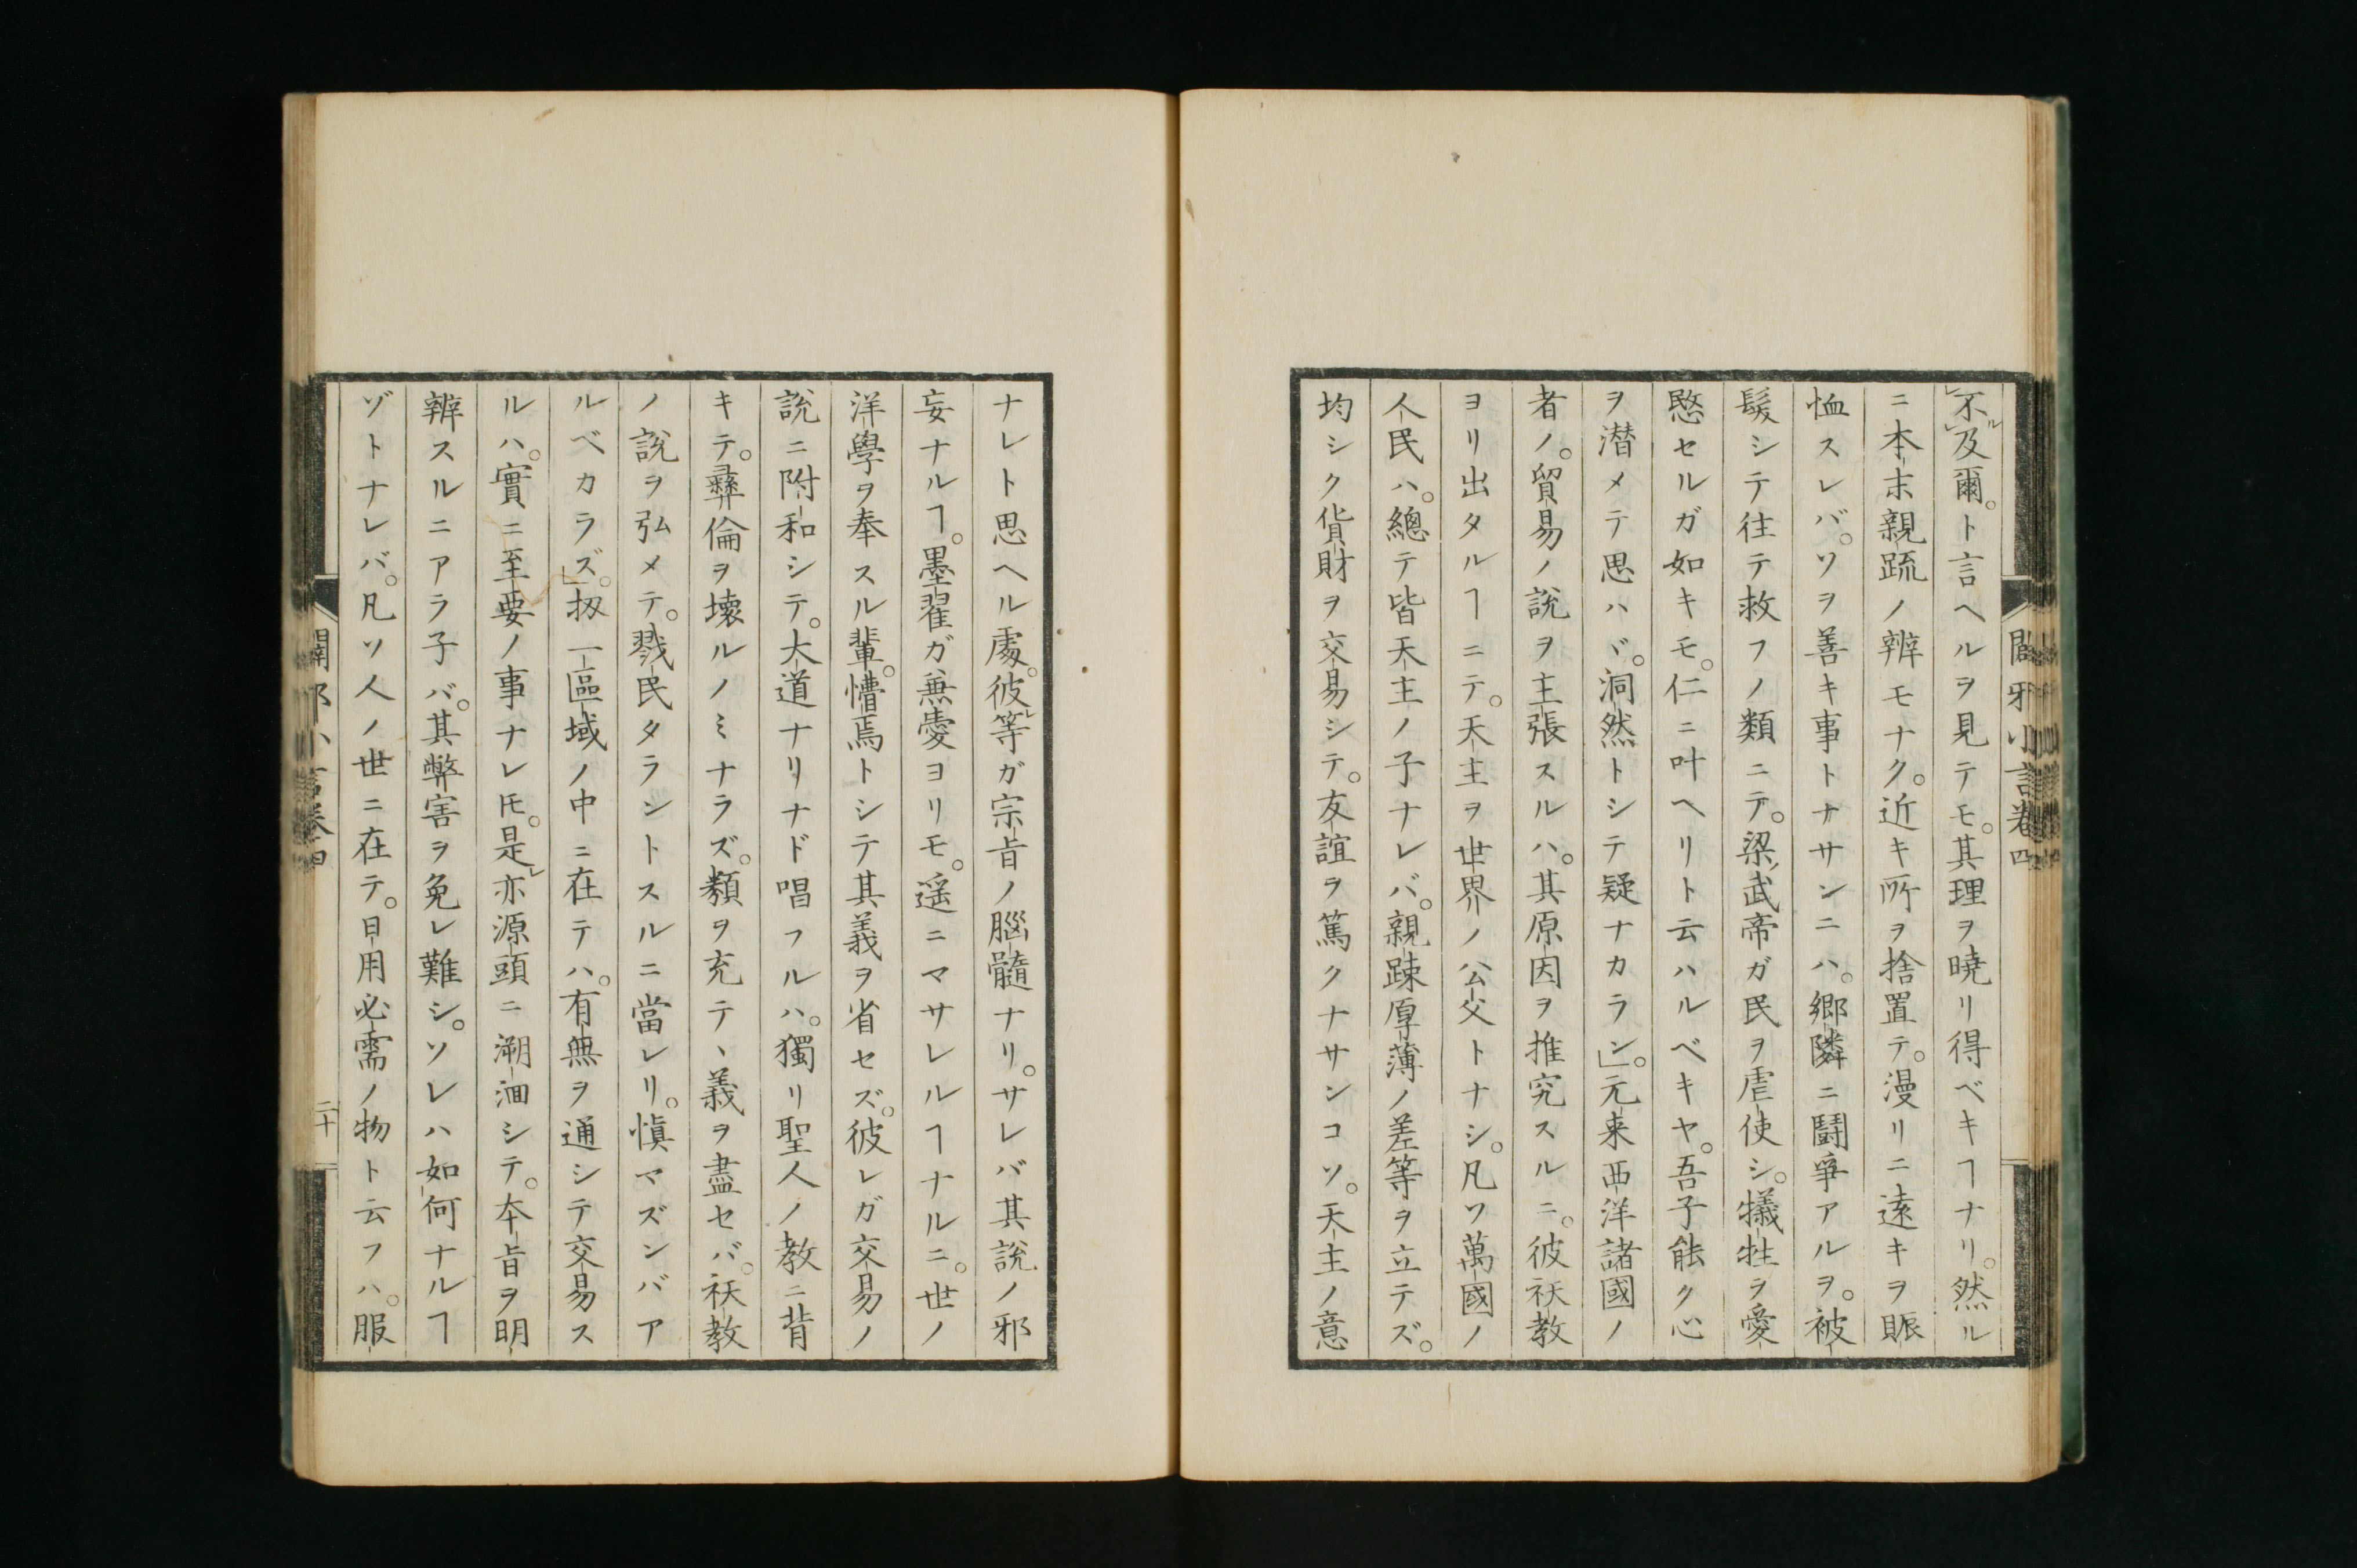 不及爾。ト言ヘルヲ見テモ。其理ヲ曉リ得ベキヿナリ。然ル
ニ本末親疏ノ辨モナク。近キ所ヲ捨置テ。漫リニ遠キヲ賑
恤スレバ。ソヲ善キ事トナサンニハ。鄉隣ニ鬪爭アルヲ。被
髮シテ往テ救フノ類ニテ。梁ノ武帝ガ民ヲ虐使シ。犧牲ヲ愛
愍セルガ如キモ。仁ニ叶ヘリト云ハルベキヤ。吾子能ク心
ヲ潜メテ思ハヾ。洞然トシテ疑ナカラン。」元来西洋諸國ノ
者ノ。貿易ノ說ヲ主張スルハ。其原因ヲ推究スルニ。彼祅教
ヨリ出タルヿニテ。天主ヲ世界ノ公父トナシ。凡ソ萬國ノ
人民ハ。總テ皆天主ノ子ナレバ。親踈厚薄ノ差等ヲ立テズ。
均シク貨財ヲ交易シテ。友誼ヲ篤クナサンコソ。天主ノ意
闢邪小言卷四
ナレト思ヘル處。彼レ等ガ宗旨ノ腦髓ナリ。サレバ其說ノ邪
妄ナルヿ。墨翟ガ兼愛ヨリモ。遥ニマサレルヿナルニ。世ノ
洋學ヲ奉スル輩。懵焉トシテ其義ヲ省セズ。彼レガ交易ノ
說ニ附和シテ。大道ナリナド唱フルハ。獨リ聖人ノ教ニ背
キテ。彞倫ヲ壞ルノミナラズ。類ヲ充テヽ義ヲ盡セバ。祅教
ノ說ヲ弘メテ。戮民タラントスルニ當レリ。愼マズンバア
ルベカラズ。」扨一區域ノ中ニ在テハ。有無ヲ通シテ交易ス
ルハ。實ニ至要ノ事ナレ𪜈。是レ亦源頭ニ溯洄シテ。本旨ヲ明
辨スルニアラ子バ。其弊害ヲ免レ難シ。ソレハ如何ナルヿ
ゾトナレバ。凡ソ人ノ世ニ在テ。日用必需ノ物ト云フハ。服
闢邪小言卷四
二十